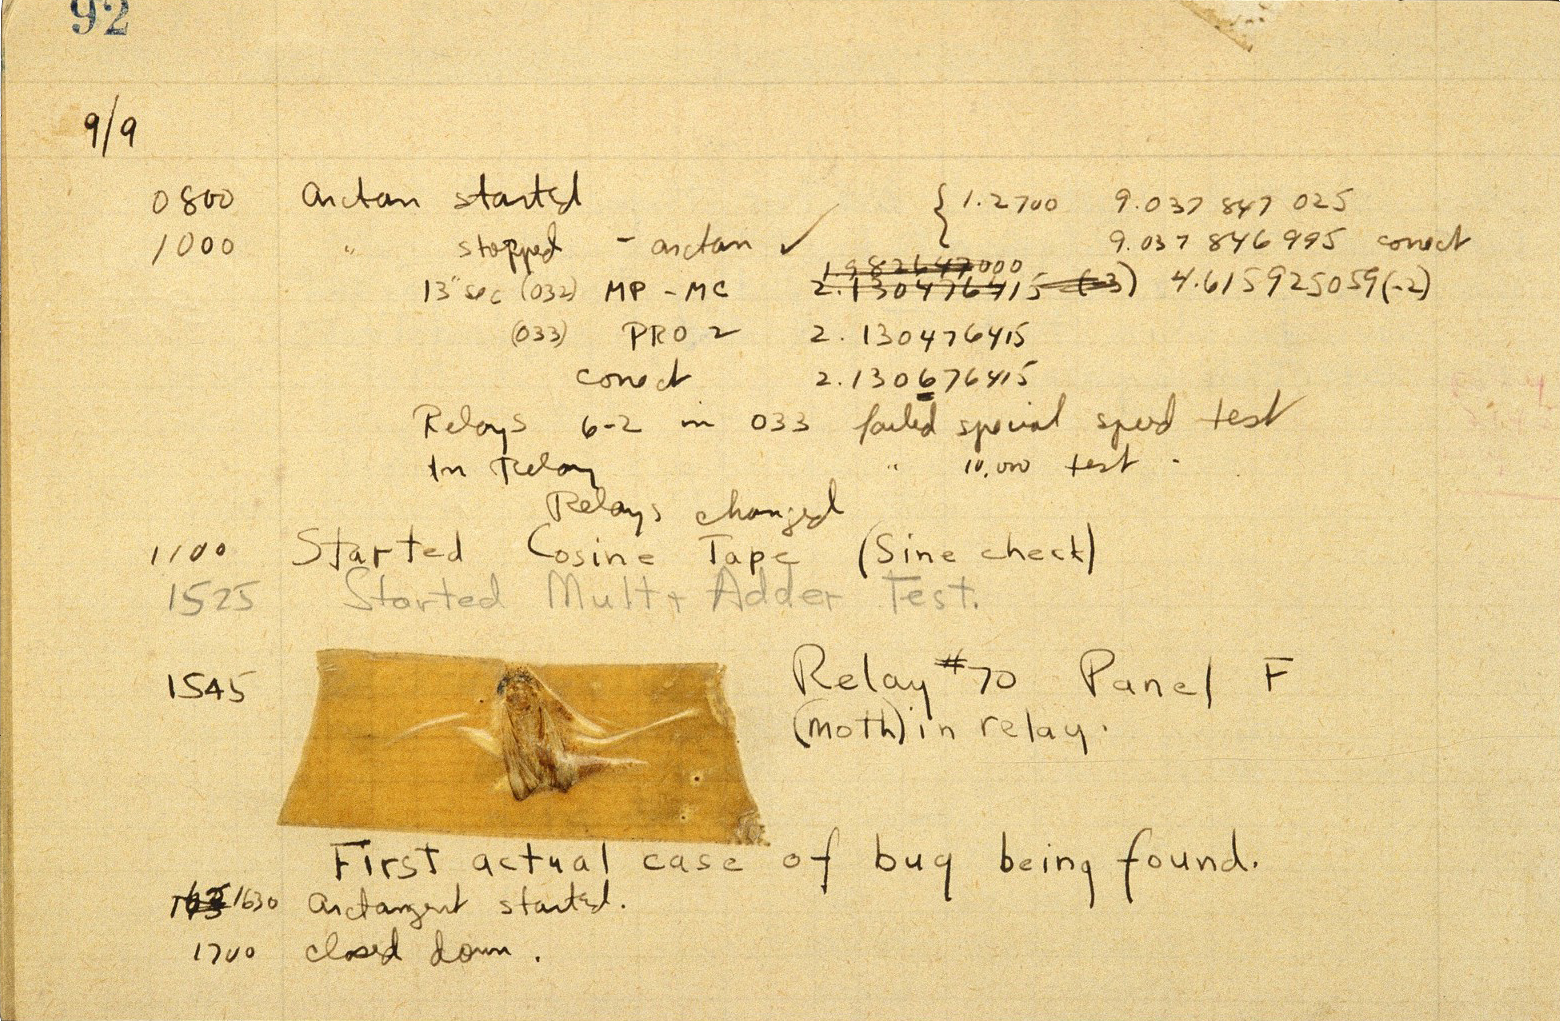 92
9/9
0800 arctan started { 1.2700 9.037 847 025
1000 " stopped - arctan ✓ 9.037 846 995 correct
13" sec (032) MP - MC 1.982647000 2.130476415 (-3) 4.615925059(-2)
(033) PRO 2 2.130476415
correct 2.130676415
Relays 6-2 in 033 failed special speed test
In Relay " 10,000 test .
Relays changed
1100 Started Cosine Tape (Sine check)
1525 Started Mult + Adder Test.
1545 Relay #70 Panel F
(moth) in relay.
First actual case of bug being found.
1630 arctangent started.
1700 closed down .